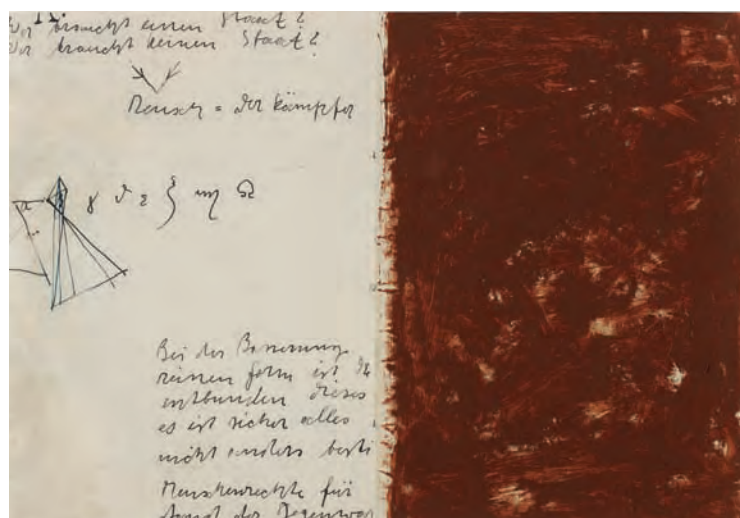 Wer braucht einen Staat?
Wer braucht keinen Staat?
Mensch = der Kämpfer
α γ ϑ ε
Bei der Benennung
reinen form ist
entbunden dieses
es ist sicher alles
nicht anders besti
Menschenrechte für
der Gegenwar